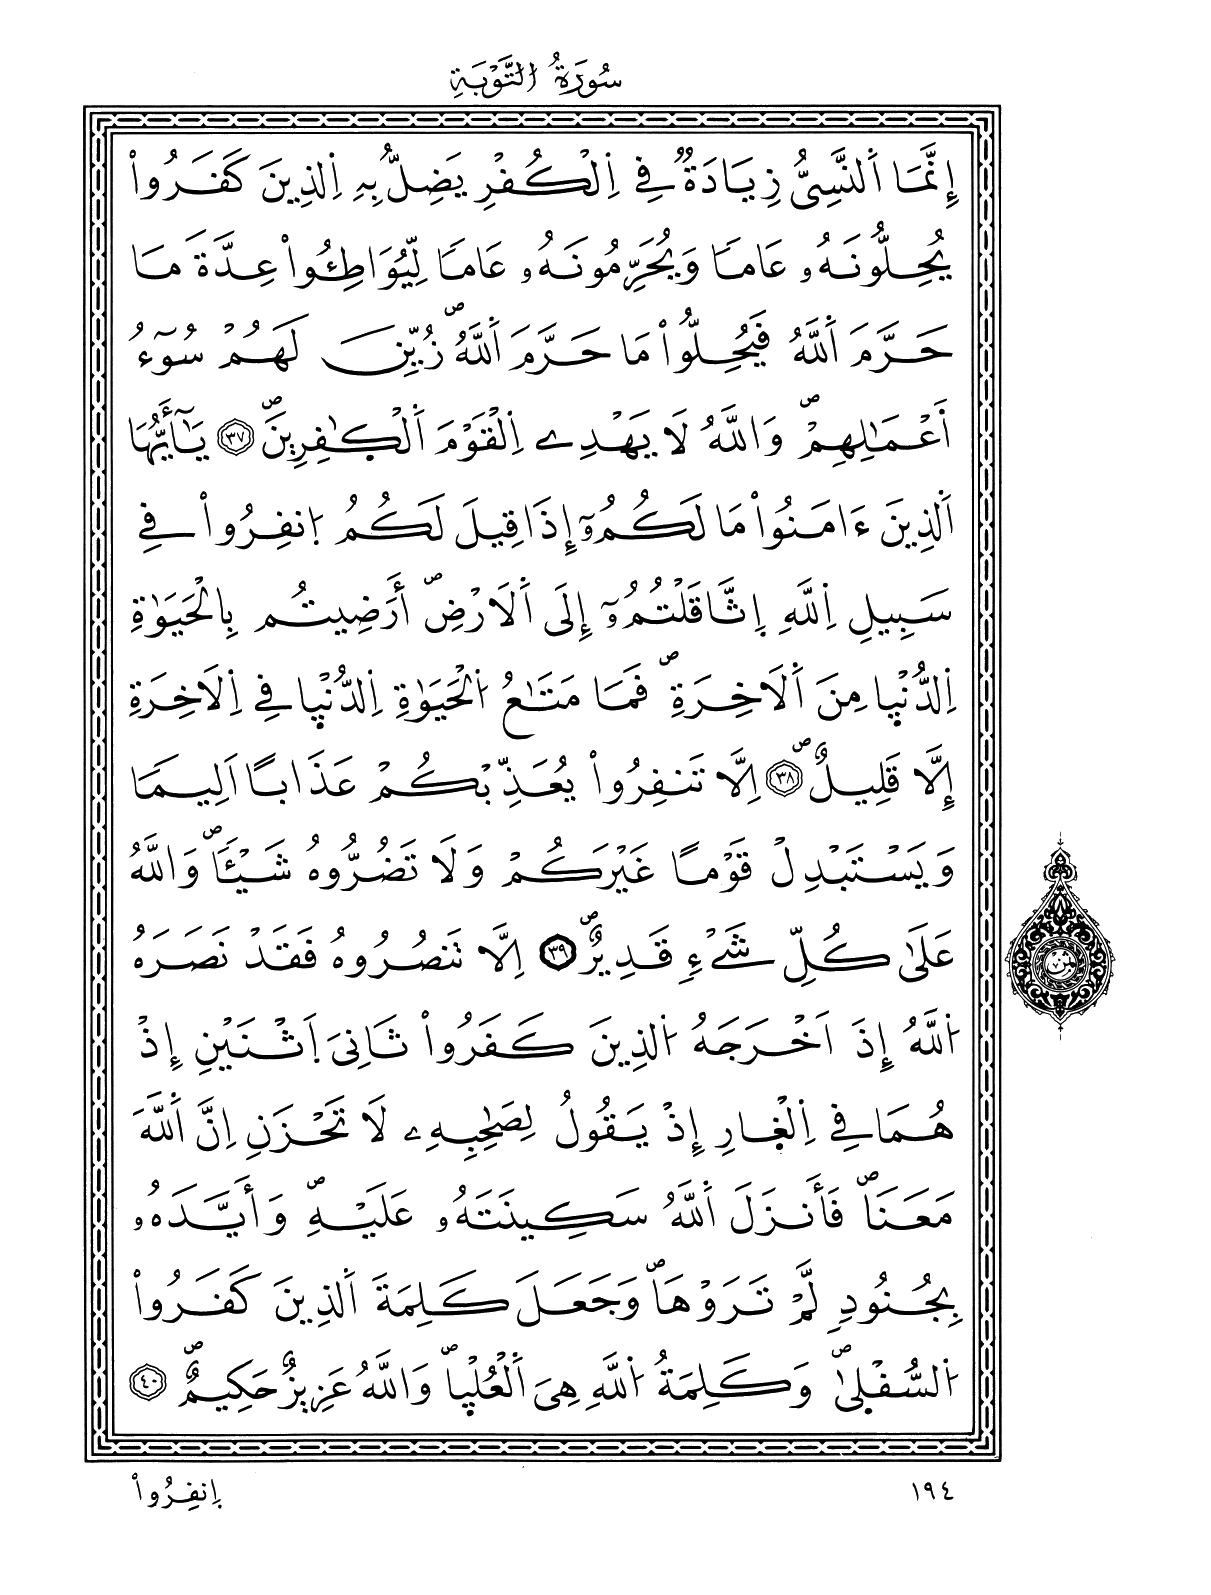 سُورَةُ التَّوْبَةِ
إِنَّمَا اَ۬لنَّسِيُّ زِيَادَةٞ فِے اِ۬لْكُفْرِ يَضِلُّ بِهِ اِ۬لذِينَ كَفَرُواْ
يُحِلُّونَهُۥ عَاماٗ وَيُحَرِّمُونَهُۥ عَاماٗ لِّيُوَاطِـُٔواْ عِدَّةَ مَا
حَرَّمَ اَ۬للَّهُ فَيُحِلُّواْ مَا حَرَّمَ اَ۬للَّهُۖ زُيِّنَ لَهُمْ سُوٓءُ
أَعْمَٰلِهِمْۖ وَاللَّهُ لَا يَهْدِے اِ۬لْقَوْمَ اَ۬لْكَٰفِرِينَۖ ٣٧ يَٰٓأَيُّهَا
اَ۬لذِينَ ءَامَنُواْ مَا لَكُمُۥٓ إِذَا قِيلَ لَكُمُ اُ۪نفِرُواْ فِے
سَبِيلِ اِ۬للَّهِ اِ۪ثَّاقَلْتُمُۥٓ إِلَى اَ۬لَارْضِۖ أَرَضِيتُم بِالْحَيَوٰةِ
اِ۬لدُّنْي۪ا مِنَ اَ۬لَاخِرَةِۖ فَمَا مَتَٰعُ اُ۬لْحَيَوٰةِ اِ۬لدُّنْي۪ا فِے اِ۬لَاخِرَةِ
إِلَّا قَلِيلٌۖ ٣٨ اِلَّا تَنفِرُواْ يُعَذِّبْكُمْ عَذَاباً اَلِيماٗ
وَيَسْتَبْدِلْ قَوْماً غَيْرَكُمْ وَلَا تَضُرُّوهُ شَيْـٔاٗۖ وَاللَّهُ
عَلَىٰ كُلِّ شَےْءٖ قَدِيرٌۖ ٣٩ اِلَّا تَنصُرُوهُ فَقَدْ نَصَرَهُ
اُ۬للَّهُ إِذَ اَخْرَجَهُ اُ۬لذِينَ كَفَرُواْ ثَانِيَ اَ۪ثْنَيْنِ إِذْ
هُمَا فِے اِ۬لْغ۪ارِ إِذْ يَقُولُ لِصَٰحِبِهِۦ لَا تَحْزَنِ اِنَّ اَ۬للَّهَ
مَعَنَاۖ فَأَنزَلَ اَ۬للَّهُ سَكِينَتَهُۥ عَلَيْهِۖ وَأَيَّدَهُۥ
بِجُنُودٖ لَّمْ تَرَوْهَاۖ وَجَعَلَ كَلِمَةَ اَ۬لذِينَ كَفَرُواْ
اُ۬لسُّفْل۪يٰۖ وَكَلِمَةُ اُ۬للَّهِ هِيَ اَ۬لْعُلْي۪اۖ وَاللَّهُ عَزِيزٌ حَكِيمٌۖ ٤٠
ثمن
اِ۪نفِرُواْ
١٩٤